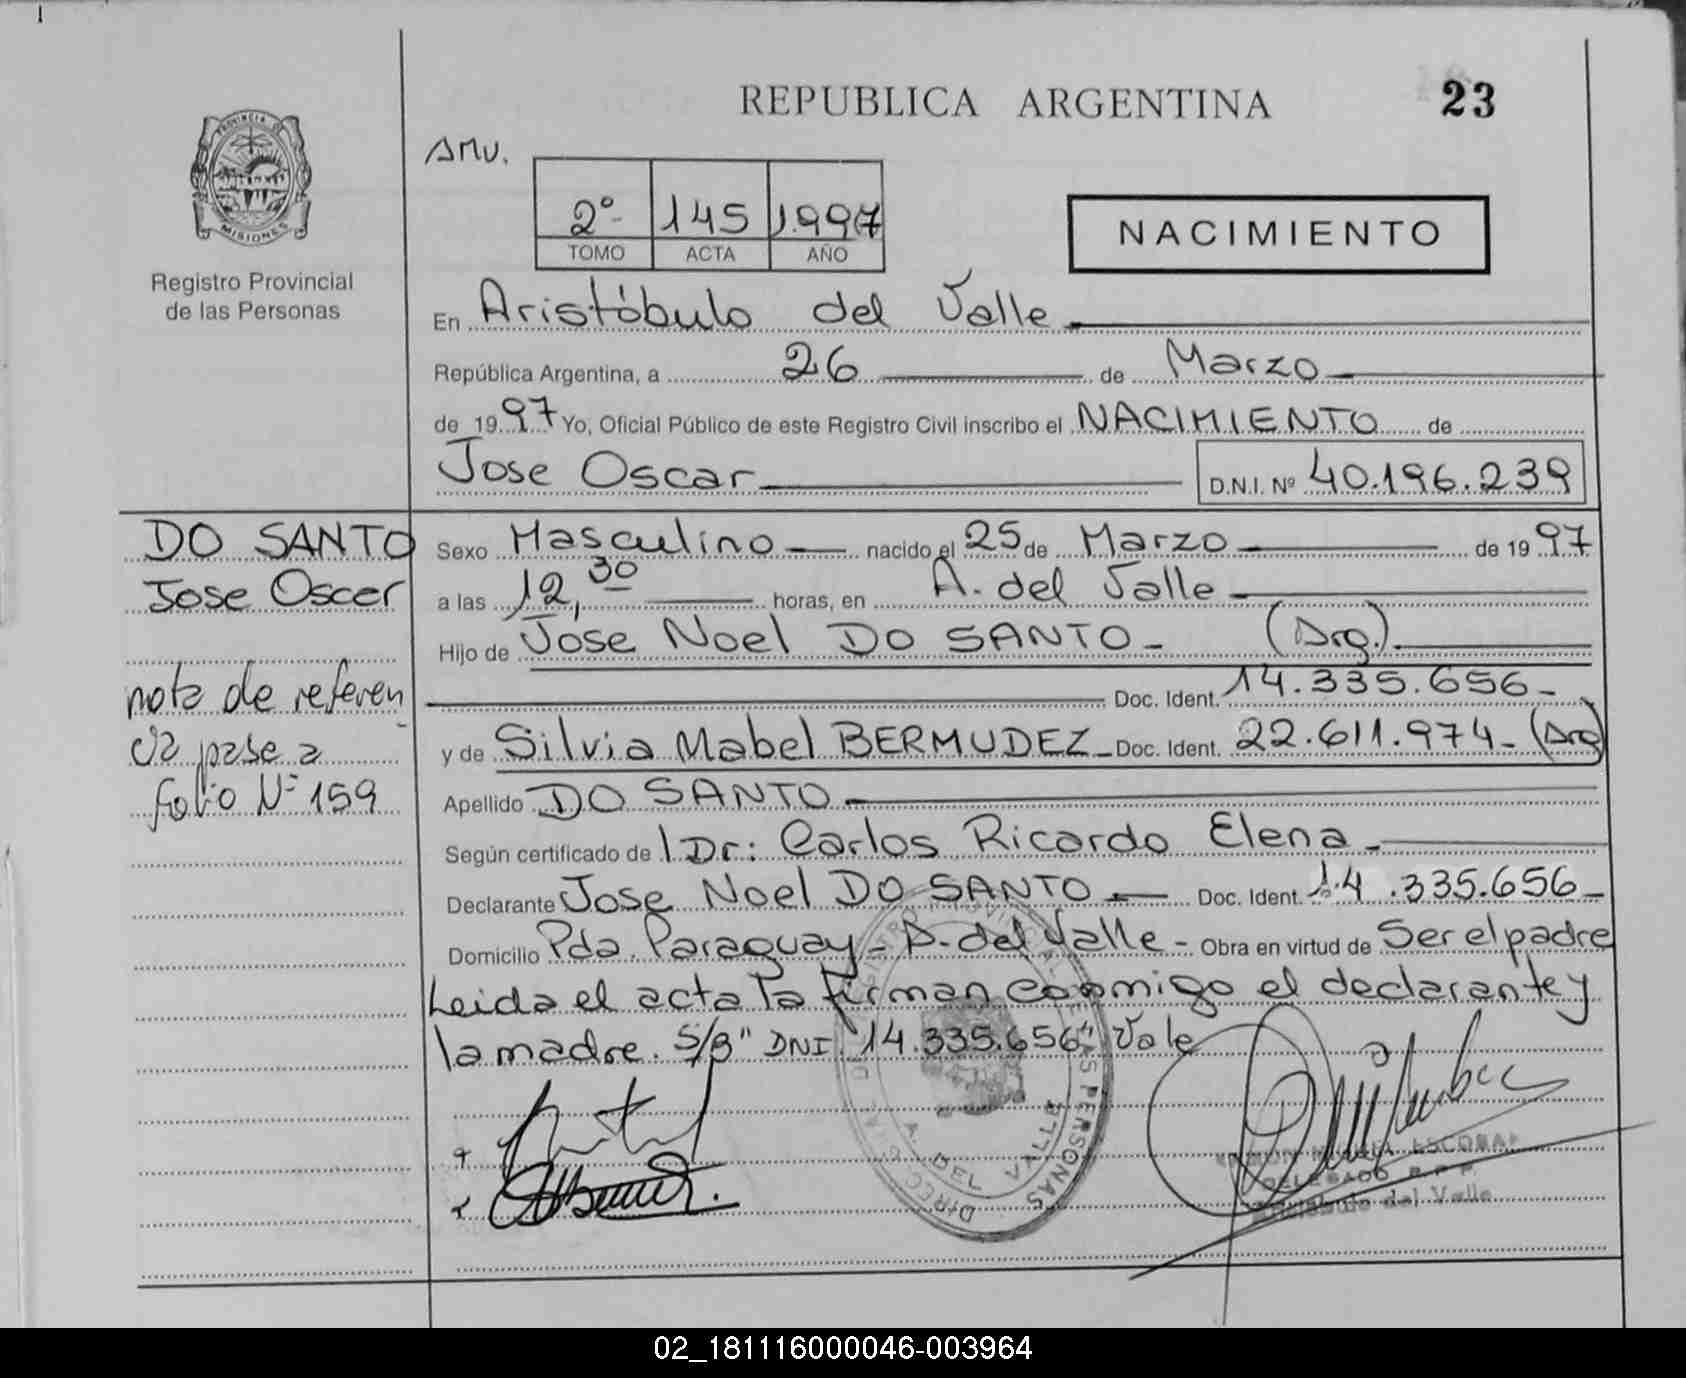 REPUBLICA ARGENTINA
23
PROVINCIA DE
MISIONES
Registro Provincial
de las Personas
AMV.
2º 145 1.997
TOMO ACTA AÑO
NACIMIENTO
En Aristóbulo del Valle
República Argentina, a 26 de Marzo
de 1997 Yo, Oficial Público de este Registro Civil inscribo el NACIMIENTO de
Jose Oscar D.N.I. Nº 40.196.239
DO SANTO
Jose Oscar
nota de referen
cia pase a
folio Nº 159
Sexo Masculino nacido el 25 de Marzo de 1997
a las 12,30 horas, en A. del Valle
Hijo de Jose Noel DO SANTO - (Arg.)
Doc. Ident. 14.335.656 -
y de Silvia Mabel BERMUDEZ - Doc. Ident. 22.611.974 - (Arg)
Apellido DO SANTO
Según certificado de Dr: Carlos Ricardo Elena -
Declarante Jose Noel DO SANTO - Doc. Ident. 14.335.656 -
Domicilio Pda. Paraguay - A. del Valle - Obra en virtud de Ser el padre
Leida el acta la firman conmigo el declarante y
la madre. S/B "DNI 14.335.656" Vale
A. DEL VALLE
ESCOBAR
DELEGADO R.P.P.
Aristobulo del Valle
02_181116000046-003964